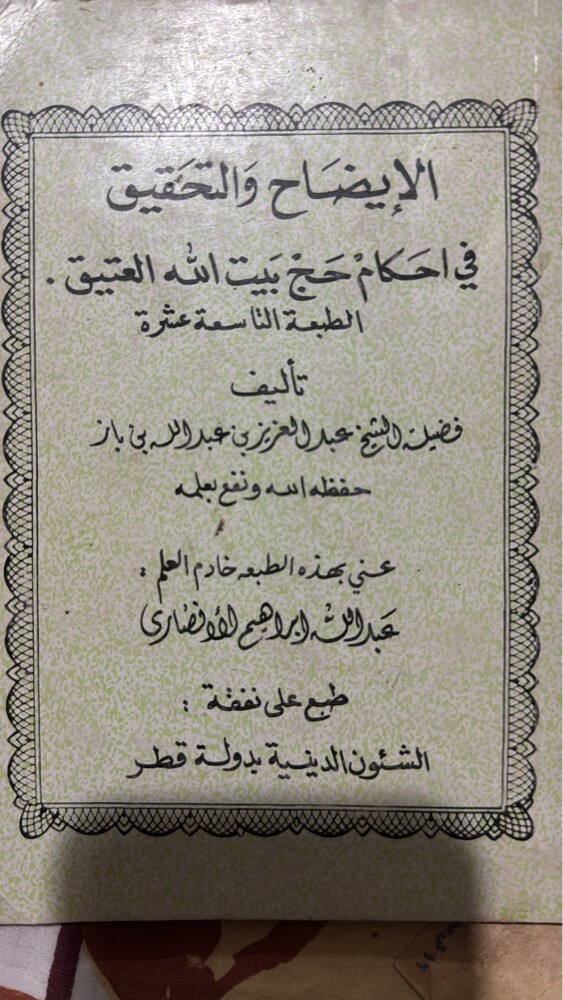 الإيضَاح وَالتحَقيق
في احَكامْ حَجْ بَيت الله العتيق .
الطبعة التاسعة عشرة
تأليف
فضيلة الشيخ عبد العزيز بن عبد الله بن باز
حفظه الله ونفع بعلمه
عني بهذه الطبعه خادم العلم :
عَبدالله ابراهيم الأنصاري
طبع على نفقة :
الشئون الدينية بدولة قطر